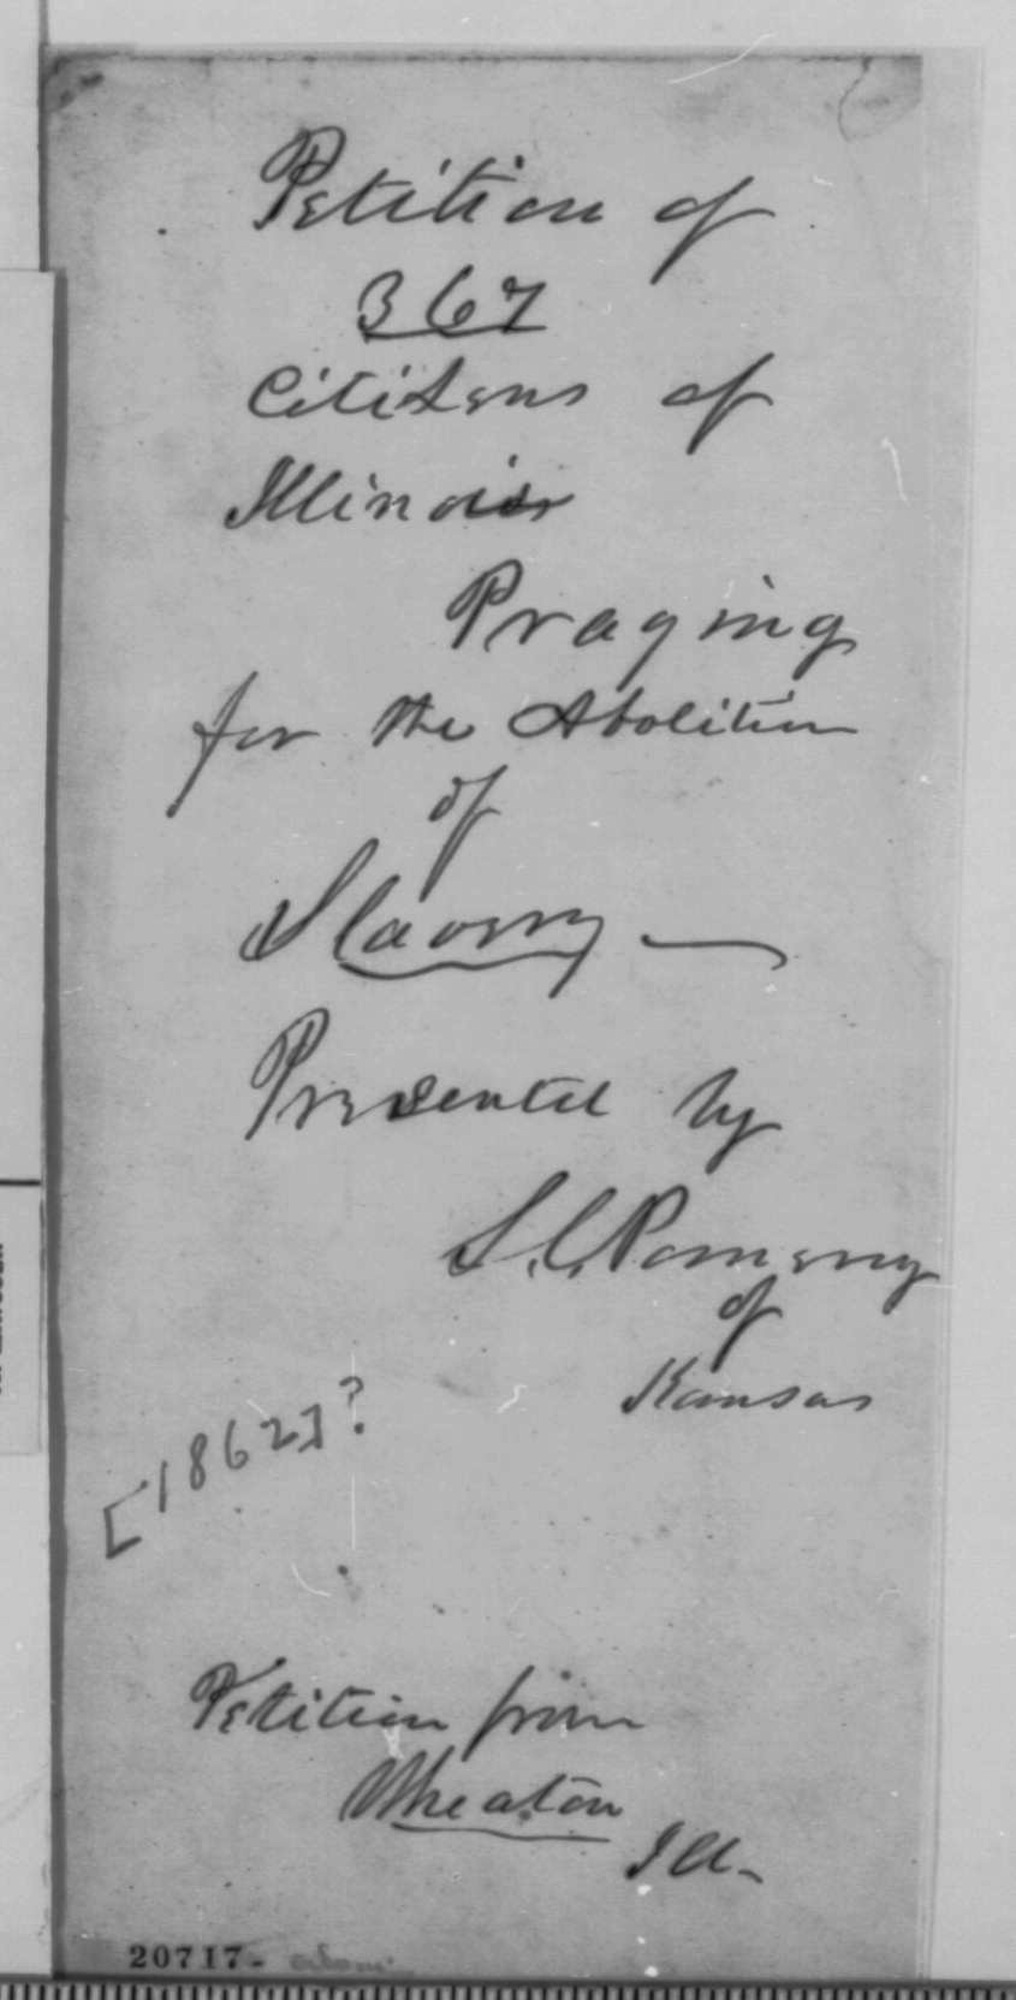 Petition of
367
Citizens of
Illinois
Praying
for the Abolition
of
Slavery —
Presented by
S. C. Pomeroy
of
Kansas
[1862]?
Petition from
Wheaton
Ill.
20717-